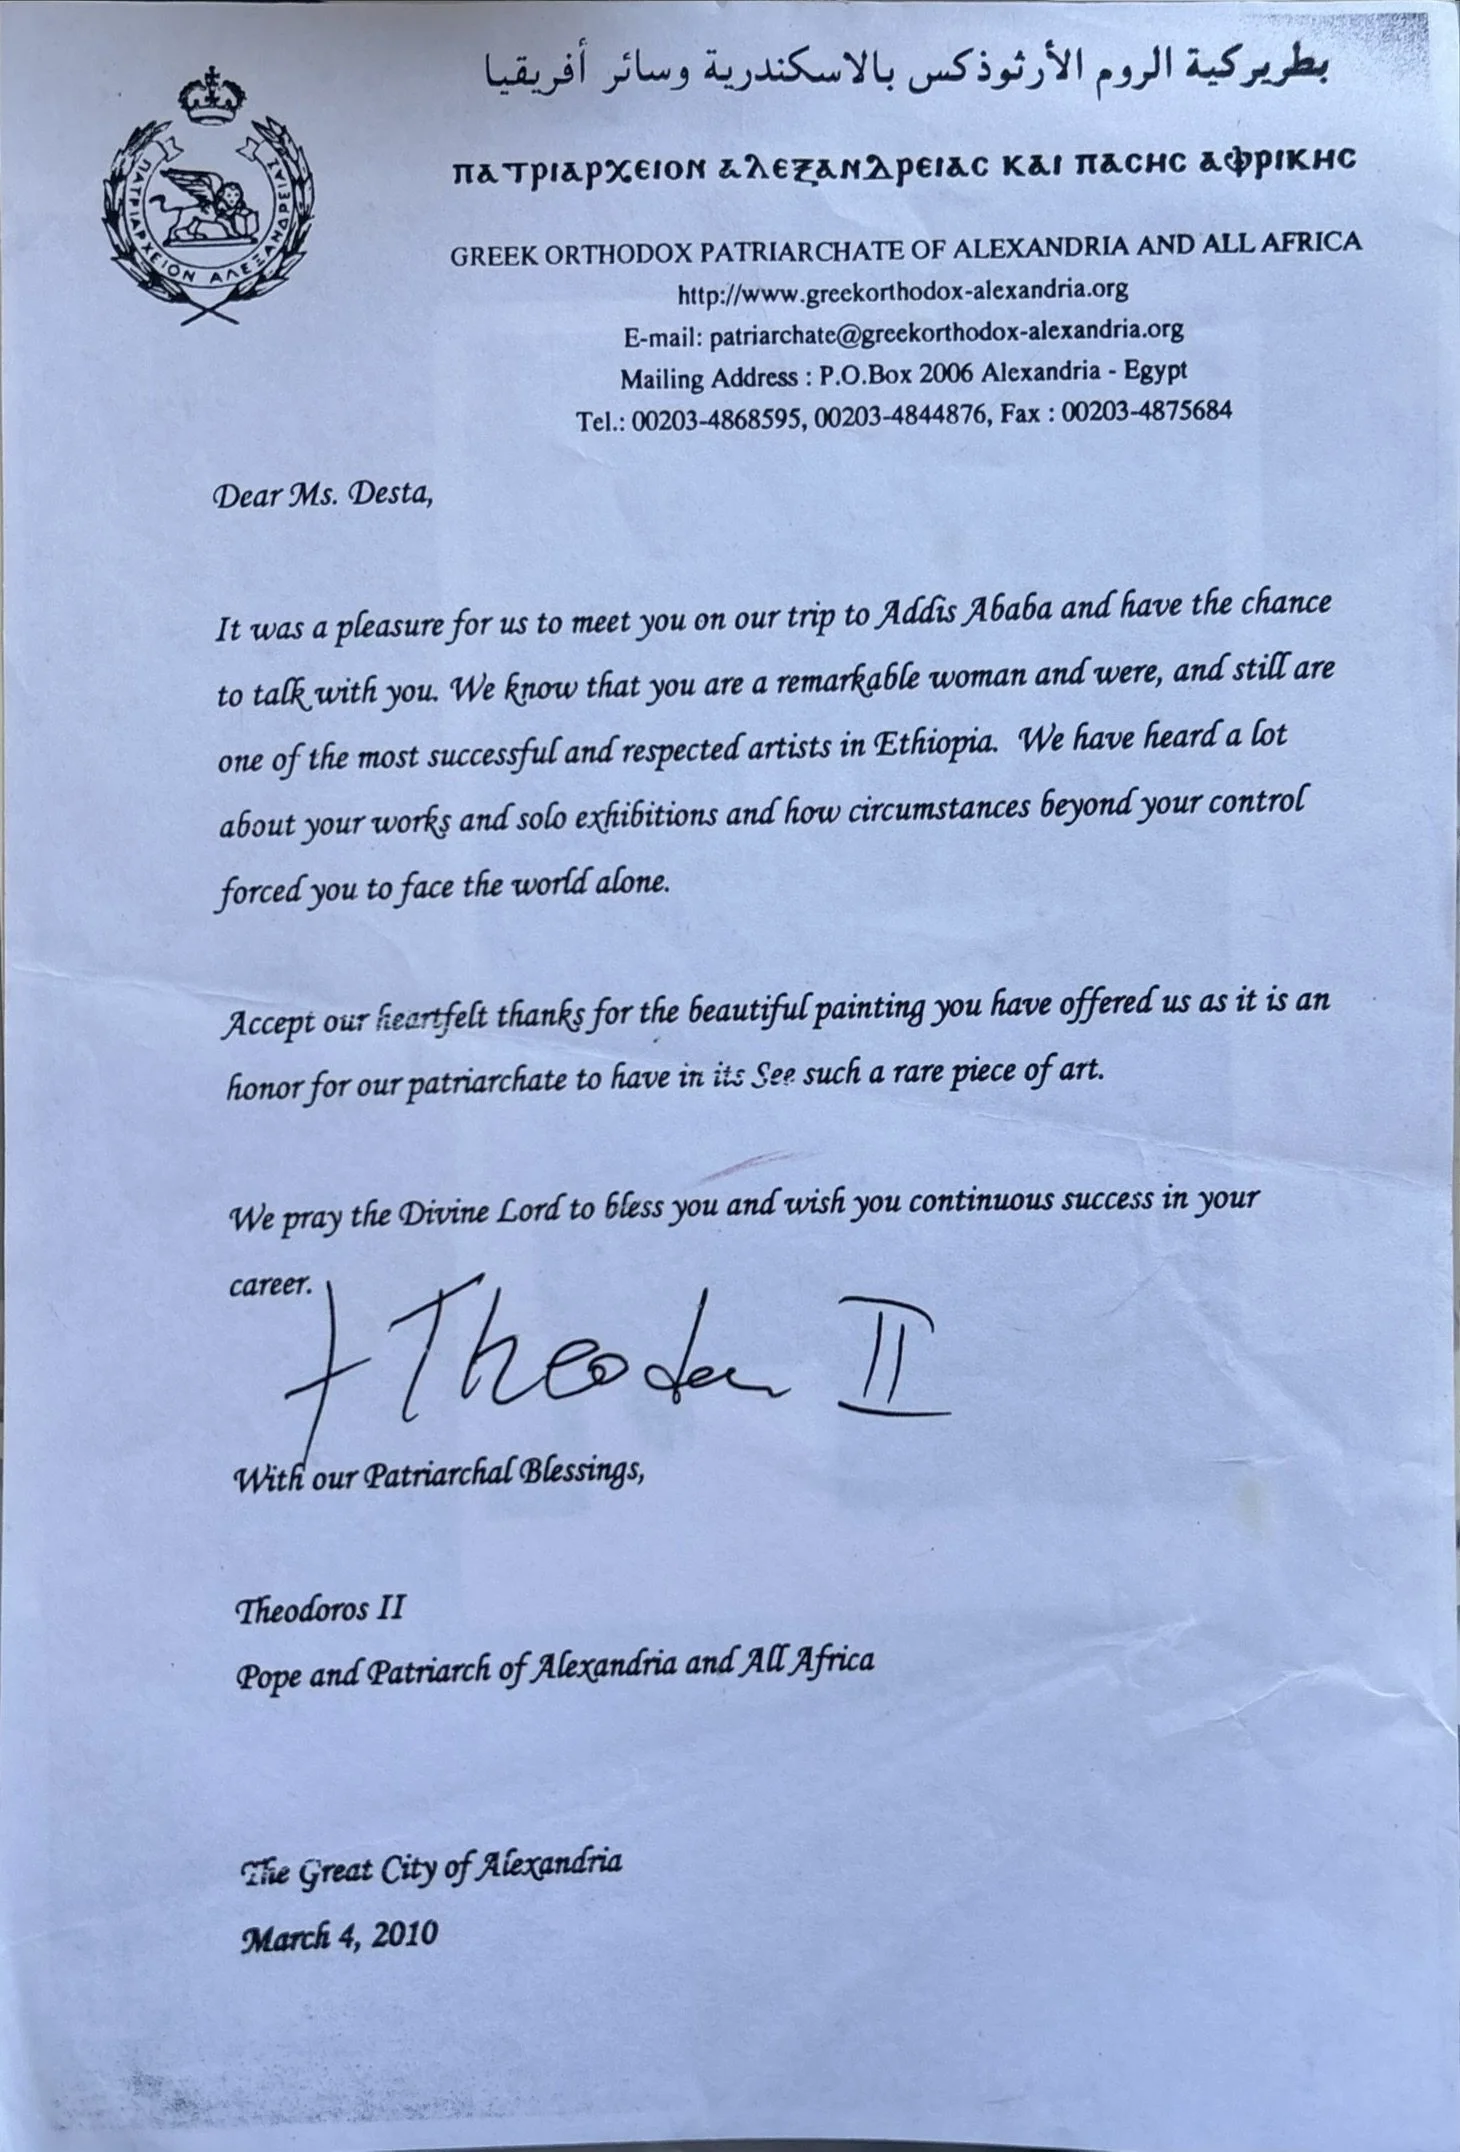 بطريركية الروم الأرثوذكس بالاسكندرية وسائر أفريقيا
ΠΑΤΡΙΑΡΧΕΙΟΝ ΑΛΕΞΑΝΔΡΕΙΑΣ
ΠΑΤΡΙΑΡΧΕΙΟΝ ΑΛΕΞΑΝΔΡΕΙΑC ΚΑΙ ΠΑCΗC ΑΦΡΙΚΗC
GREEK ORTHODOX PATRIARCHATE OF ALEXANDRIA AND ALL AFRICA
http://www.greekorthodox-alexandria.org
E-mail: patriarchate@greekorthodox-alexandria.org
Mailing Address : P.O.Box 2006 Alexandria - Egypt
Tel.: 00203-4868595, 00203-4844876, Fax : 00203-4875684
Dear Ms. Desta,
It was a pleasure for us to meet you on our trip to Addis Ababa and have the chance
to talk with you. We know that you are a remarkable woman and were, and still are
one of the most successful and respected artists in Ethiopia. We have heard a lot
about your works and solo exhibitions and how circumstances beyond your control
forced you to face the world alone.
Accept our heartfelt thanks for the beautiful painting you have offered us as it is an
honor for our patriarchate to have in its See such a rare piece of art.
We pray the Divine Lord to bless you and wish you continuous success in your
career.
II
With our Patriarchal Blessings,
Theodoros II
Pope and Patriarch of Alexandria and All Africa
The Great City of Alexandria
March 4, 2010